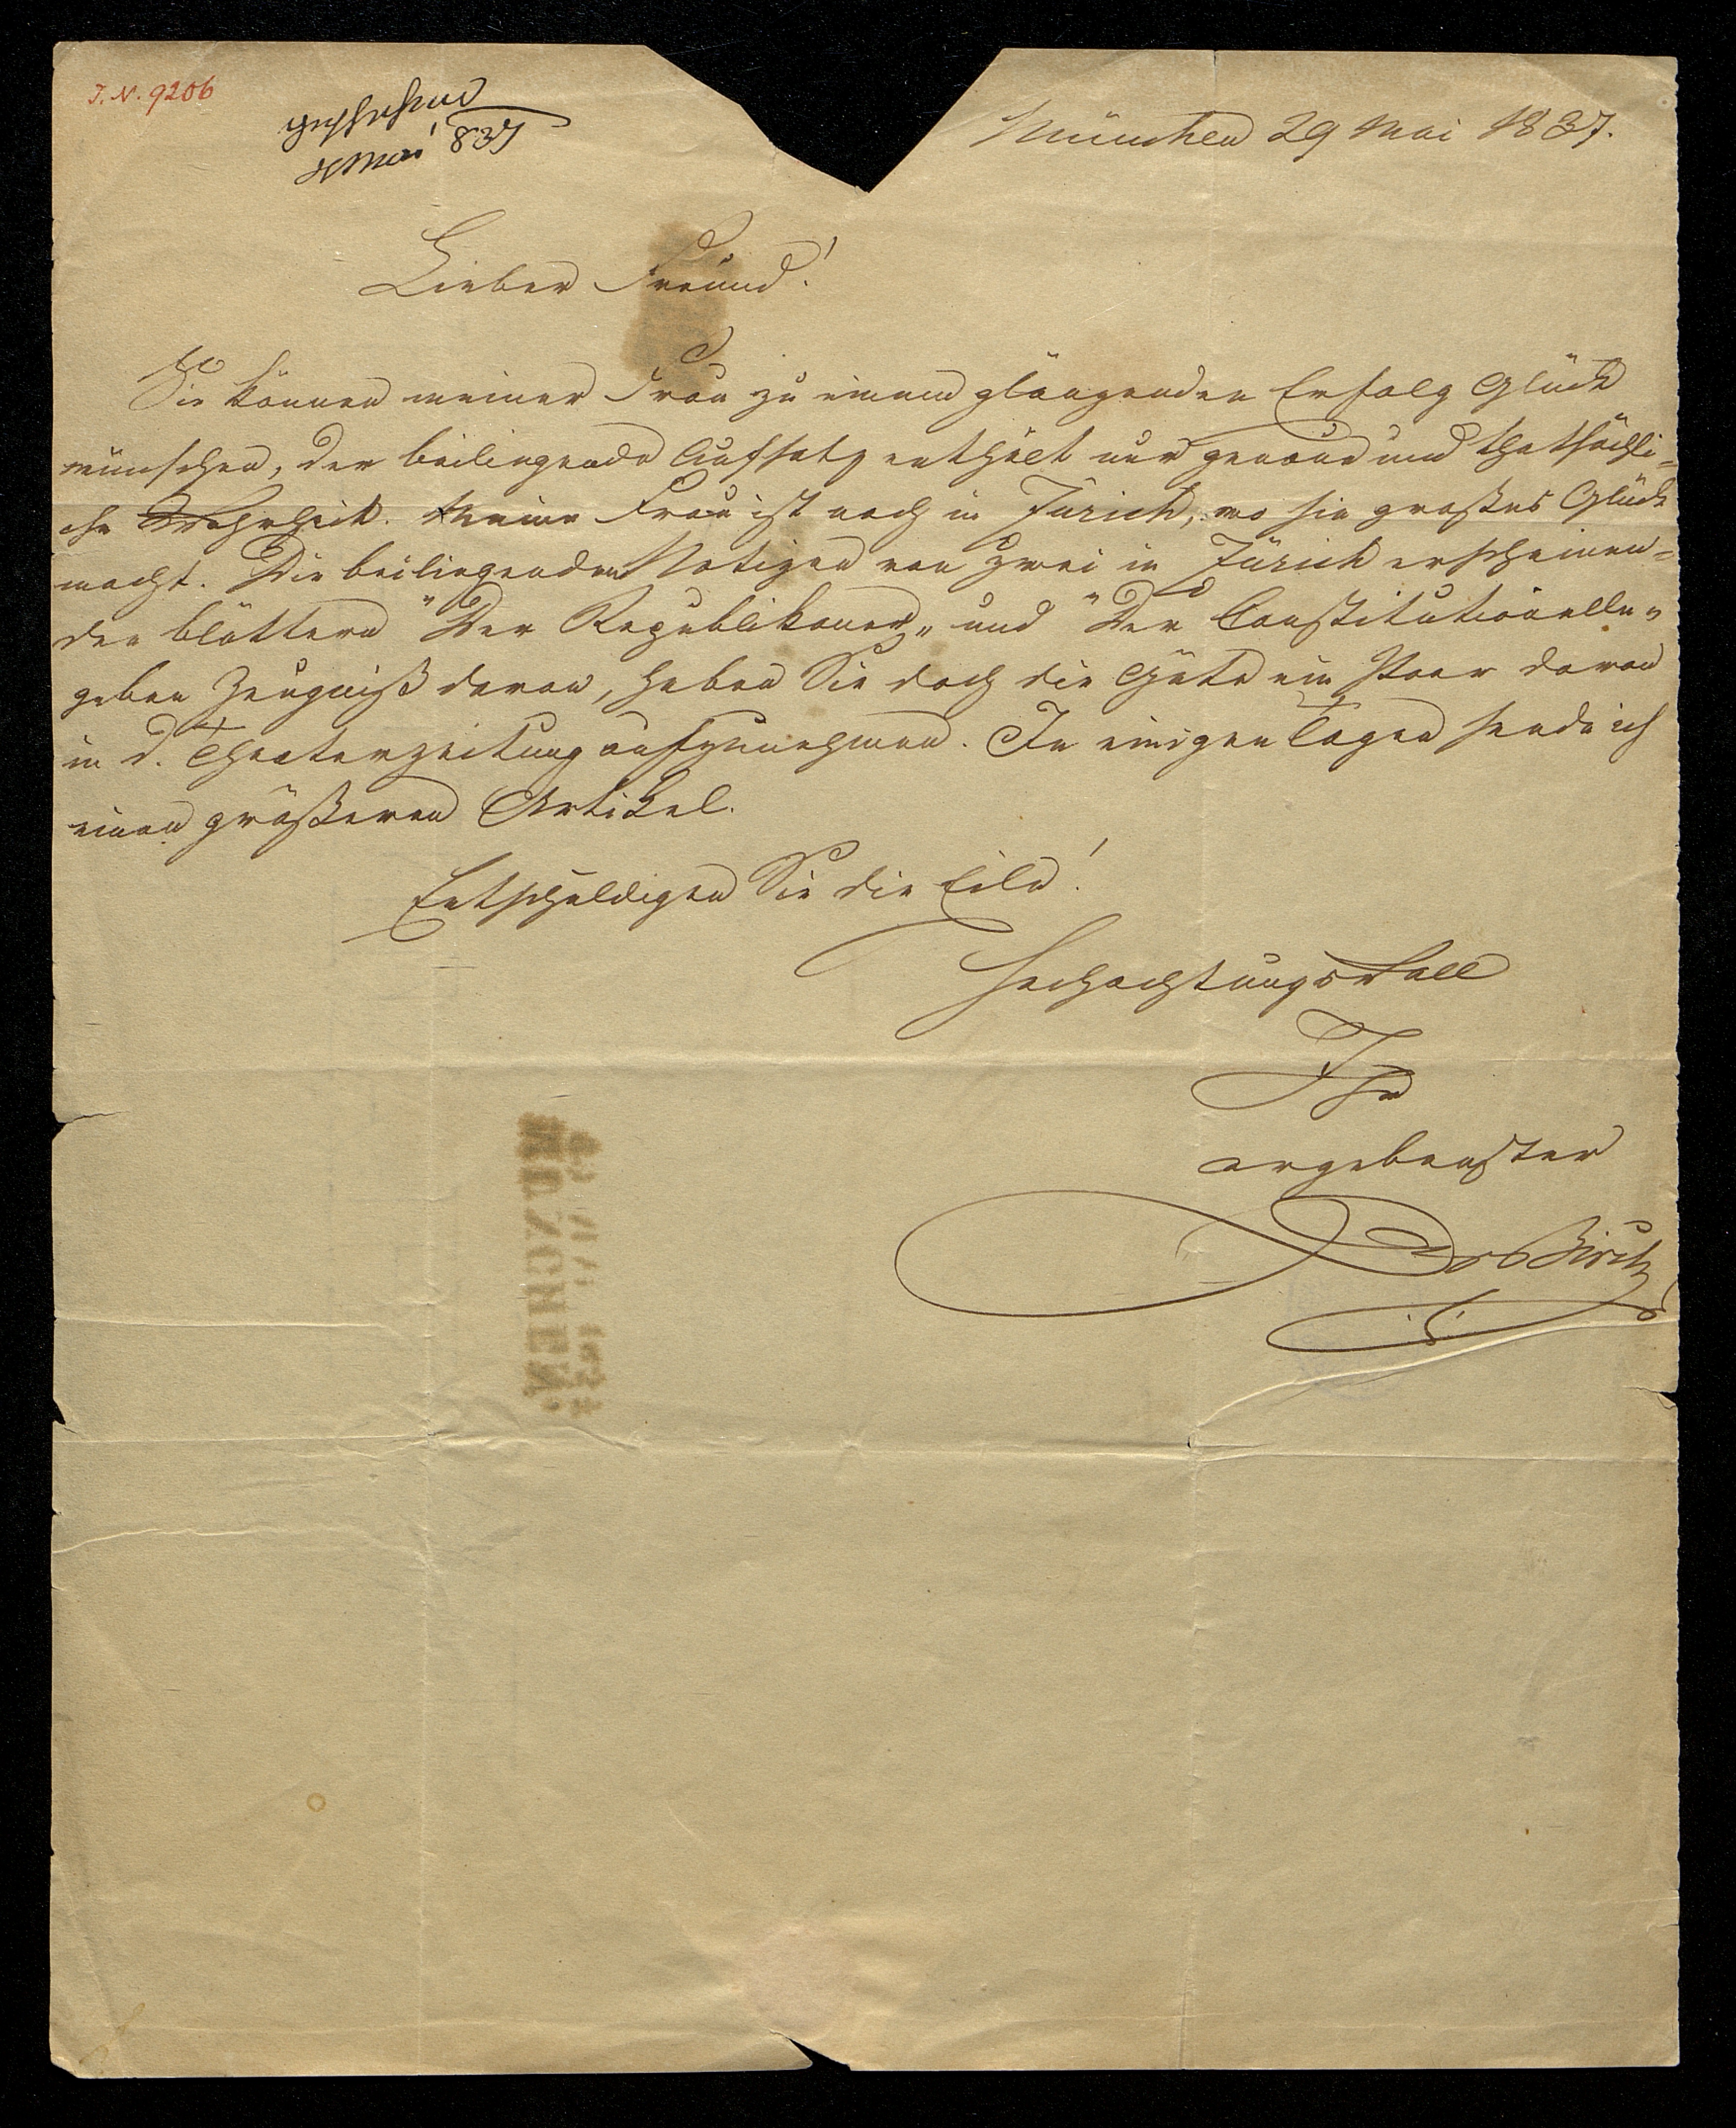 I. N. 9206
geschehen
Mai 837
München 29 Mai 1837.
Lieber Freund!
Sie können meiner Frau zu einem glänzenden Erfolg Glück
wünschen, der beiliegende Aufsatz enthält nur genau und thatsächli-
che Wahrheit. Meine Frau ist noch in Zürich, wo sie großes Glück
macht. Die beiliegenden Notizen von zwei in Zürich erscheinen=
den Blättern "Der Republikaner„ und "Der Constitutionelle„
geben Zeugniß davon, haben Sie doch die Güte ein Paar davon
in d. Theaterzeitung aufzunehmen. In einigen Tagen sende ich
einen größeren Artikel.
Entschuldigen Sie die Eile!
Hochachtungsvoll
Ihr
ergebenster
Dr Birch
MÜNCHEN